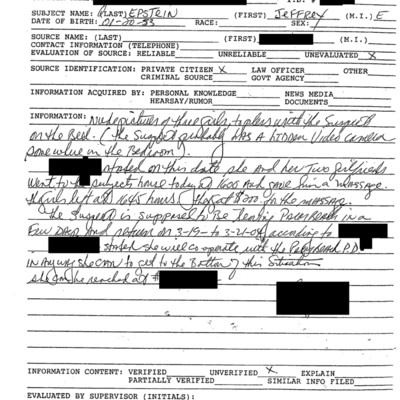 SUBJECT NAME: (LAST) EPSTEIN (FIRST) Jeffrey (M.I.) E
DATE OF BIRTH: 01-20-53 RACE: SEX:
SOURCE NAME: (LAST) (FIRST) (M.I.)
CONTACT INFORMATION (TELEPHONE)
EVALUATION OF SOURCE: RELIABLE UNRELIABLE UNEVALUATED X
SOURCE IDENTIFICATION: PRIVATE CITIZEN X LAW OFFICER OTHER
CRIMINAL SOURCE GOVT AGENCY
INFORMATION ACQUIRED BY: PERSONAL KNOWLEDGE NEWS MEDIA
HEARSAY/RUMOR DOCUMENTS
INFORMATION: Nude pictures of three girls with the Suspect
on the Bed. (The Suspect HAS A HIDDEN Video camera
somewhere in the Bedroom).
stated on this date she and her Two girlfriends
went to the subjects house today @ 1600 AND GAVE him a MASSAGE.
left at 1645 hours $200 for the MASSAGE.
The Suspect is supposed to Be leaving Palm Beach in a
Few Days and return on 3-19- to 3-21- according to
stated she will cooperate with the Palm Beach P.D.
IN ANY WAY she can to get to the Bottom of this Situation
she can be reached at #
INFORMATION CONTENT: VERIFIED UNVERIFIED X EXPLAIN
PARTIALLY VERIFIED SIMILAR INFO FILED
EVALUATED BY SUPERVISOR (INITIALS):